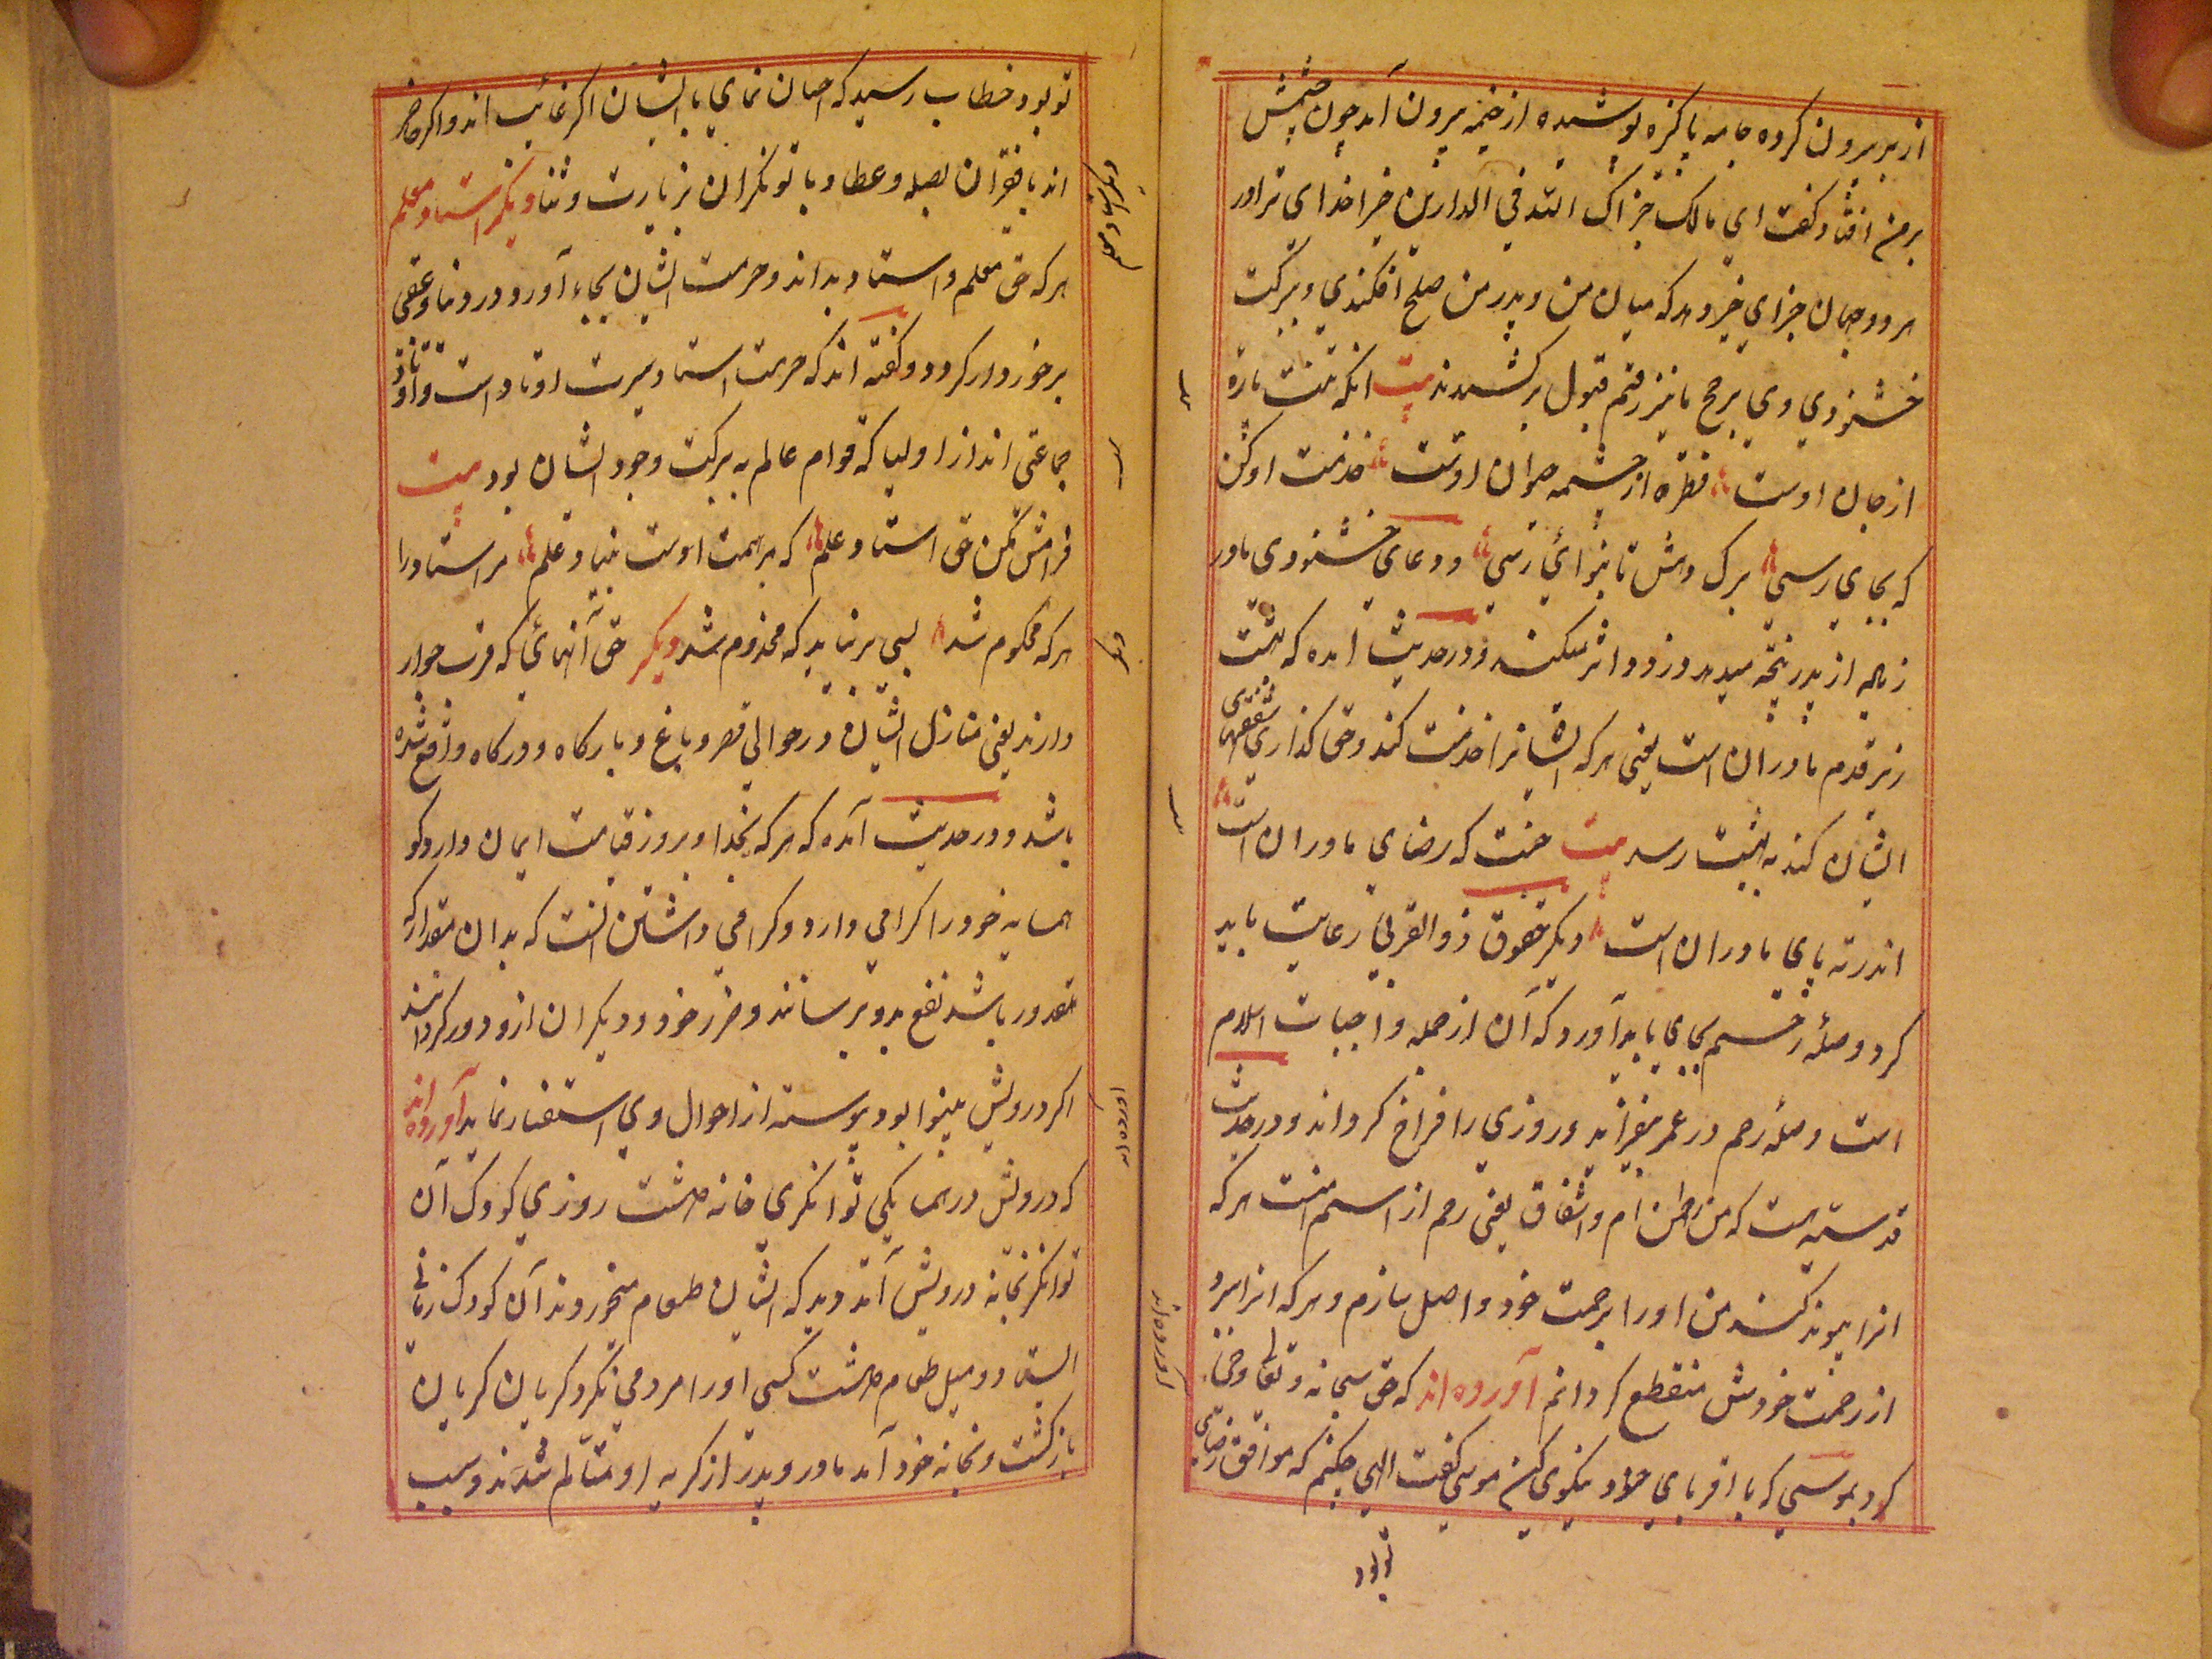 از بر بیرون کرده جامه پاکیزه پوشیده از خیمه بیرون آمد چون چشمش
بر من افتاد گفت ای مالک جزاک الله فی الدارین خیرا خدای ترا در
هر دو جهان جزای خیر دهد که میان من و پدر من صلح افکندی و ببرکت
خشنودی وی بر حج ما نیز رقم قبول برکشیدند بیت انکه تنت پاره
از جان اوست قطره از چشمه حیوان اوست خدمت او کن
که بجای رسی برگ دهش تا بنوائی رسی و دعای خشنودی مادر
زیاده از پدر نتیجه میدهد و زود اثر میکند و در حدیث آمده که بهشت
زیر قدم مادران است یعنی هر که ایشانرا خدمت کند و حق گذاری شفقتهای
ایشان کند به بهشت رسد بیت جنت که رضای مادران است
اندر ته پای مادران است دیگر حقوق ذو القربی رعایت باید
کرد و صلهٔ رحم بجای باید آورد که آن از جمله واجبات اسلام
است و صلهٔ رحم در عمر بیفزاید و روزی را فراخ گرداند و در حدیث
قدسیه هست که من رحمن ام و اشتقاق یعنی رحم از اسم منست هر که
انرا پیوند کند من او را برحمت خود واصل سازم و هر که انرا ببرد
از رحمت خودش منقطع گردانم آورده اند که حق سبحانه و تعالی وحی
کرد بموسی که با اقربای خود نیکوی کن موسی گفت الهی چکنم که موافق رضای
تو بود
تو بود خطاب رسید که احسان نمای با ایشان اگر غائب اند و اگر حاضر
اند با فقیران بصله و عطا و با توانگران بزیارت و ثنا دیگر استاد و معلم
هر که حق معلم و استاد بداند و حرمت ایشان بجاء آورد در دنیا و عقبی
برخوردار گردد و گفته اند که حرمت استاد سیرت اوتاد است و اوتاد
جماعتی اند از اولیا که قوام عالم به برکت وجود ایشان بود بیت
فرامش مکن حق استاد علم که بر همت اوست بنیاد علم مر استاد را
هر که محکوم شد بسی بر نیاید که مخدوم شد دیگر حق آنهائی که قرب جوار
دارند یعنی منازل ایشان در حوالی قصر و باغ و بارگاه و درگاه واقع شده
باشد و در حدیث آمده که هر که بخدا و بروز قیامت ایمان دارد گو
همسایه خود را گرامی دارد و گرامی داشتن انست که بدان مقدار که
مقدور باشد نفع بدو برسانند و ضرر خود و دیگران ازو دور گردانند
اگر درویش بینوا بود پیوسته از احوال وی استفسار نماید آورده اند
که درویش در همسایگی توانگری خانه داشت روزی کودک آن
توانگر بخانه درویش آمد دید که ایشان طعام میخوردند آن کودک زمانی
ایستاد و میل طعام داشت کسی او را مردمی نکرد گریان گریان
بازگشت و بخانه خود آمد مادر و پدر از گریه او متالم شدند و سبب
دیگر استاد و معلم
دیگر
آورده اند
آورده اند